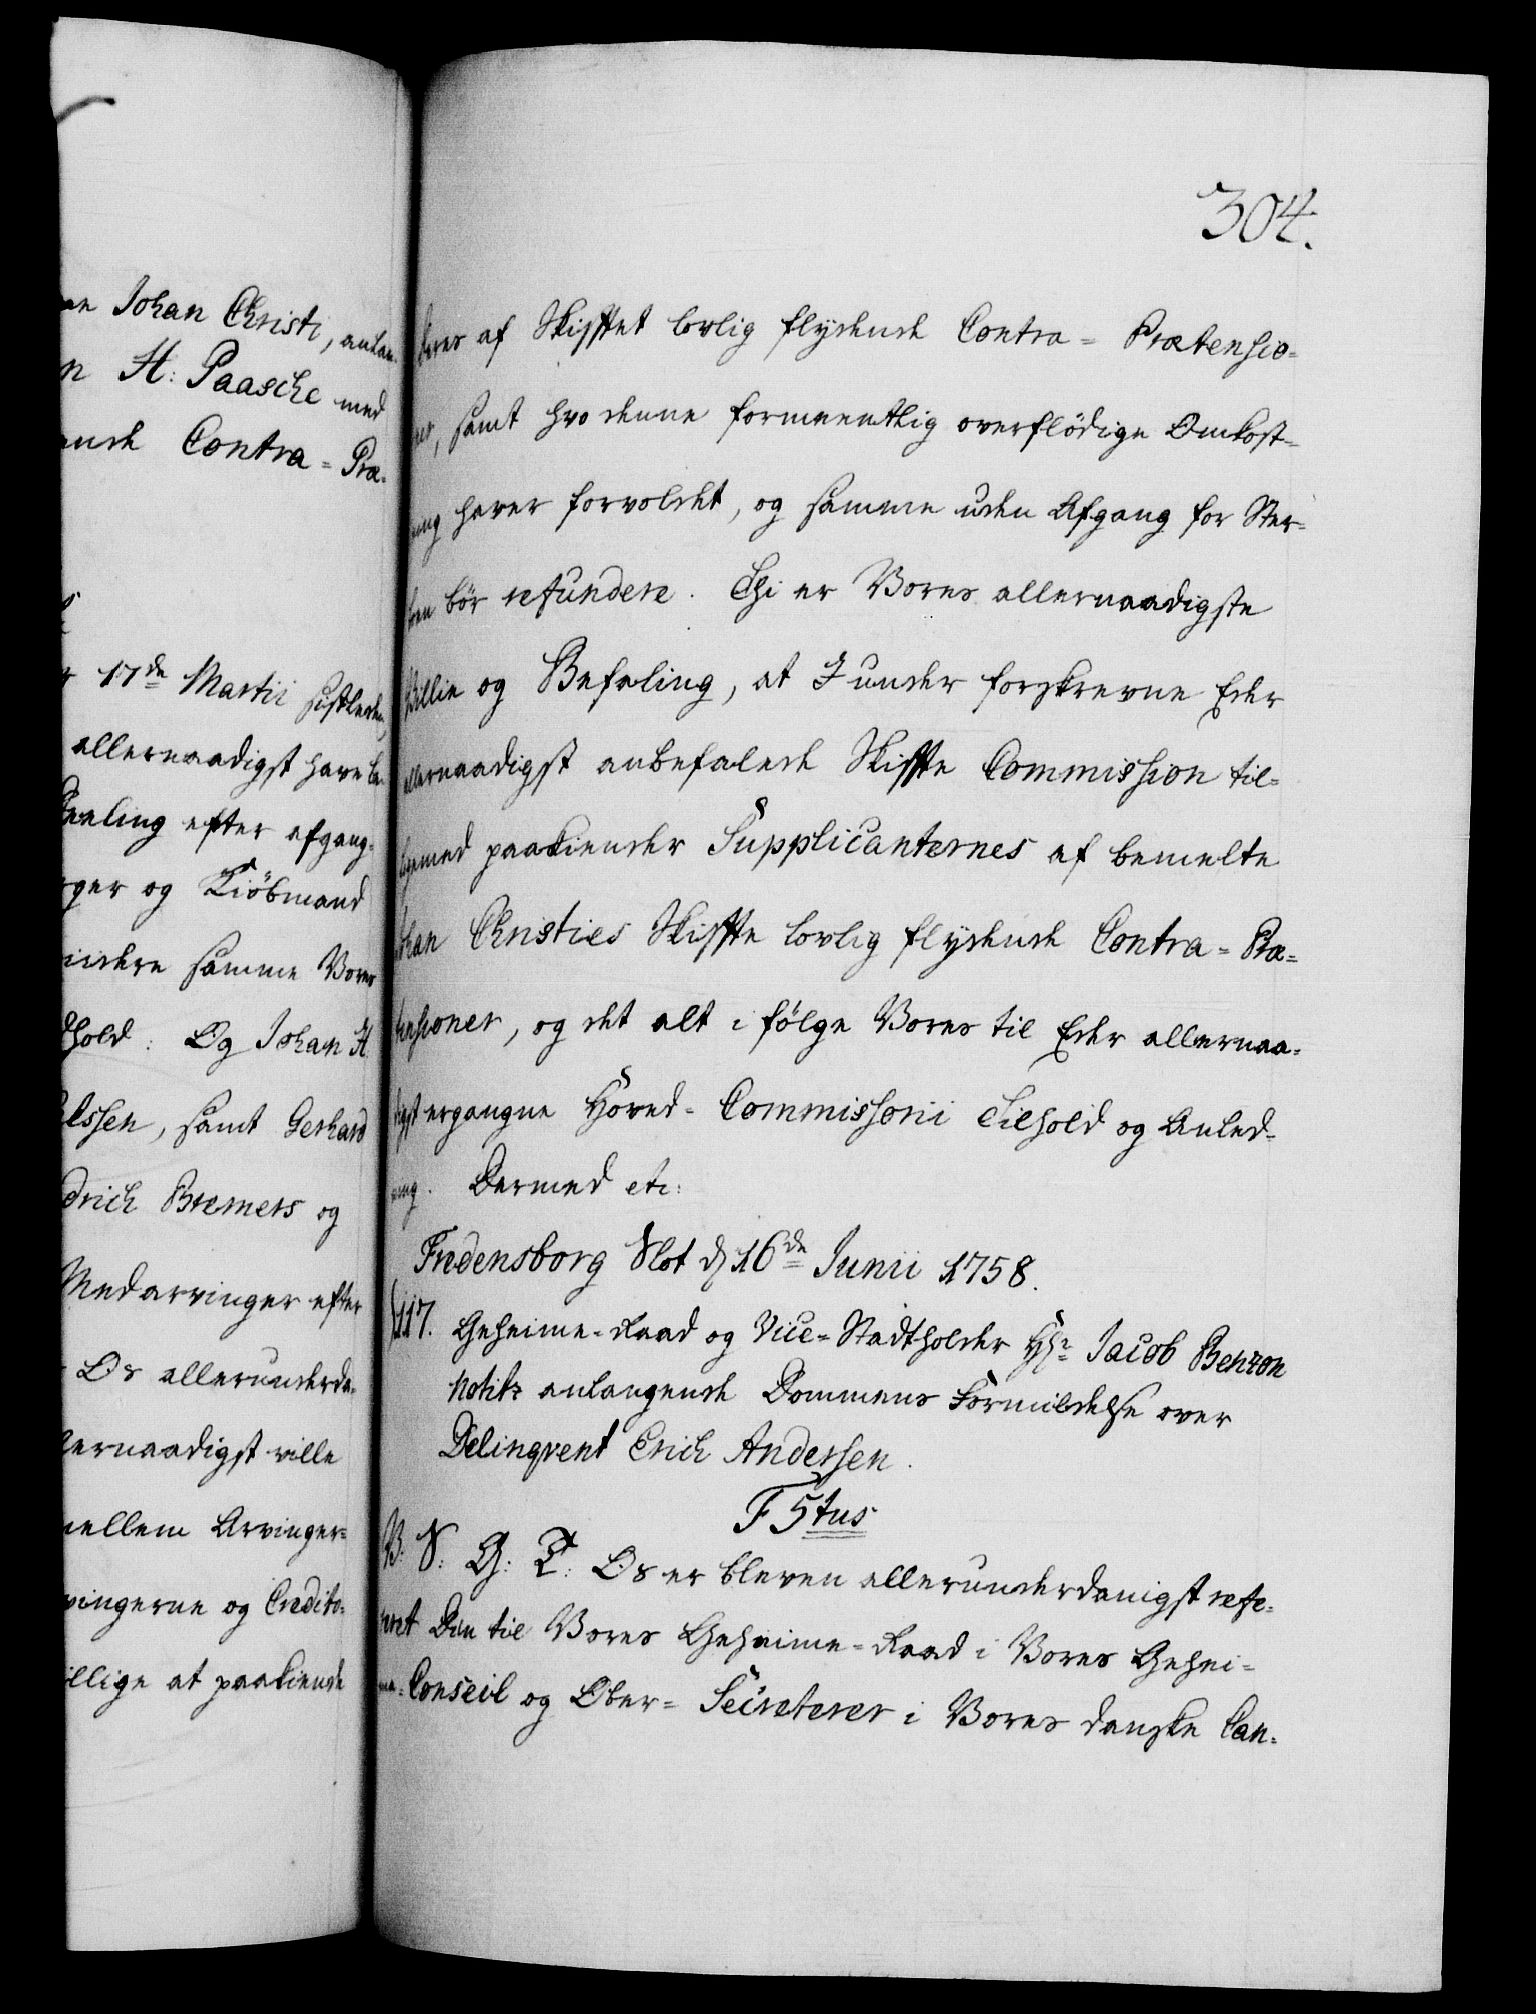 ne Johan Christi, anlan-
n H: Paasche med
ende Contra=Præ-
17de Martii sistleden,
allernaadigst have be-
Deeling efter afgang-
rger og Kiöbmand
samme Vores
dhold: Og Johan H.
elssen, samt Gerhard
drich Bremers og
Medarvinger efter
Os allerunderda-
lernaadigst ville
mellem Arvinger-
vingerne og Credito-
illige at paakiende
304.
deres af Skifftet lovlig flydende Contra=Prætensio-
ner, samt hvo denne formeentlig overflödige Omkost-
ning haver forvoldet, og samme uden Afgang for Ster-
boen bör refundere. Thi er Vores allernaadigste
Villie og Befaling, at I under forskrevne Eder
allernaadigst anbefalede Skiffte Commission til-
ligemed paakiender Supplicanternes af bemelte
Johan Christies Skiffte lovlig flydende Contra=Præ-
tensioner, og det alt i fölge Vores til Eder allernaa-
digst ergangne Hoved=Commissorii Tilhold og Anled-
ning. Dermed etc:
Fredensborg Slot d 16de Junii 1758.
117. Geheime=Raad og Vice=Stadtholder Hr. Jacob Benzon
Notitz anlangende Dommens Formildelse over
Delinqvent Erich Andersen.
F 5tus
V: S: G: T: Os er bleven allerunderdanigst refe-
reret Din til Vores Geheime=Raad i Vores Gehei-
me=Conseil og Ober=Secreterer i Vores danske Can-